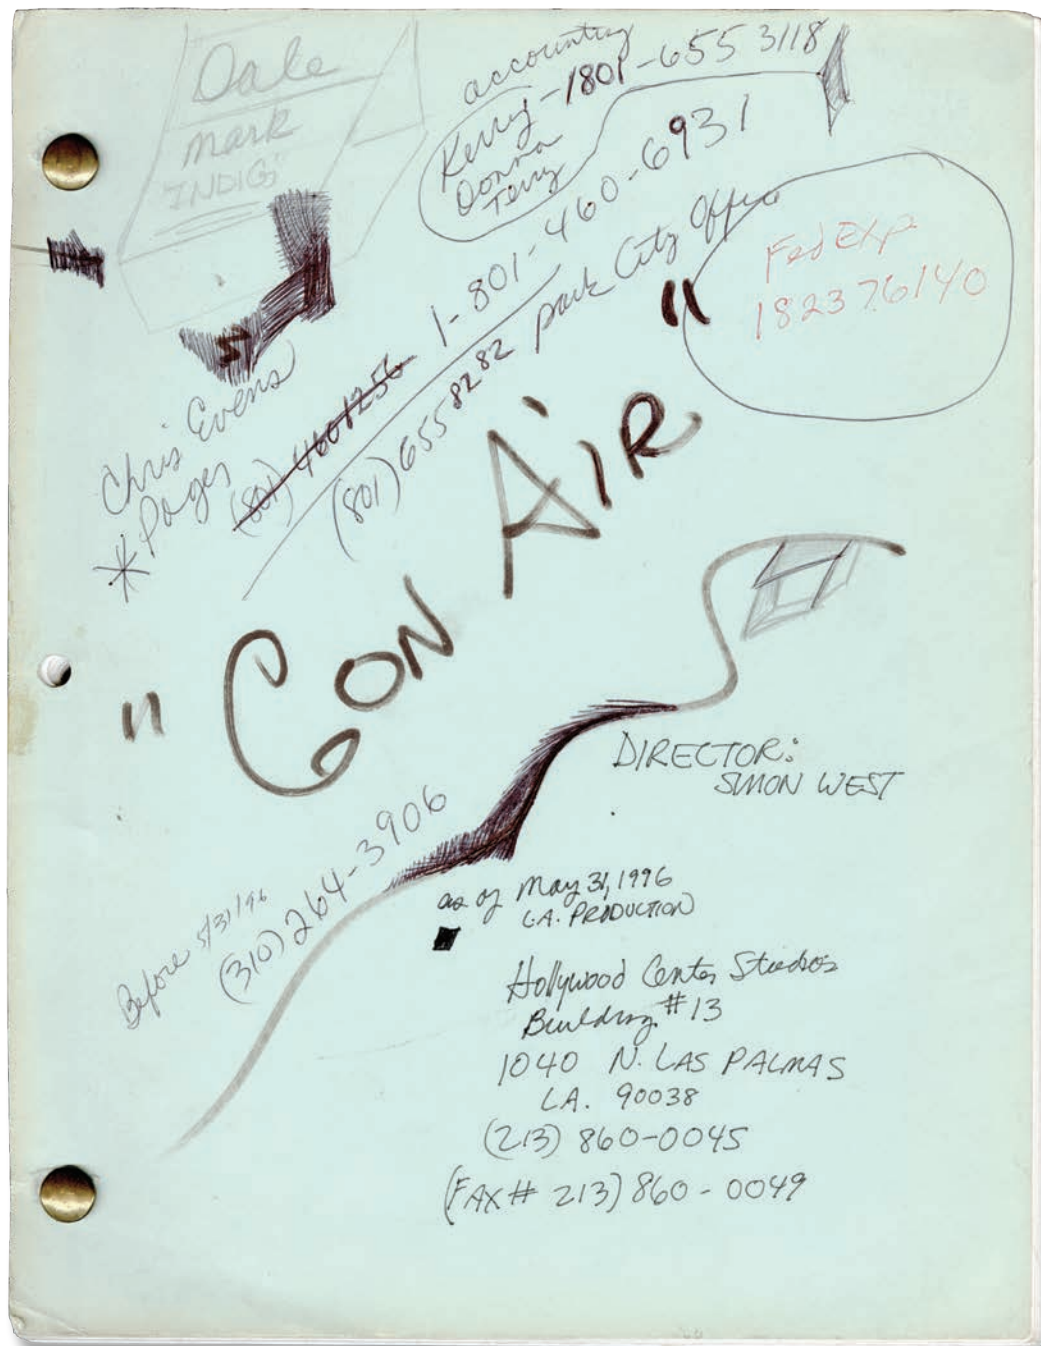 Dale
mark
INDIG
accounting
Kerry-1801-655 3118
Donna
Terry
1-801-460-6931
FedExp
182376140
Chris Evens
*Pages
(801) 4601256
(801) 655 8282 park City Office
"CON AIR"
DIRECTOR:
SIMON WEST
Before 5/31/96
(310) 264-3906
as of May 31, 1996
L.A. PRODUCTION
Hollywood Center Studios
Building #13
1040 N. LAS PALMAS
LA. 90038
(213) 860-0045
(FAX# 213) 860-0049